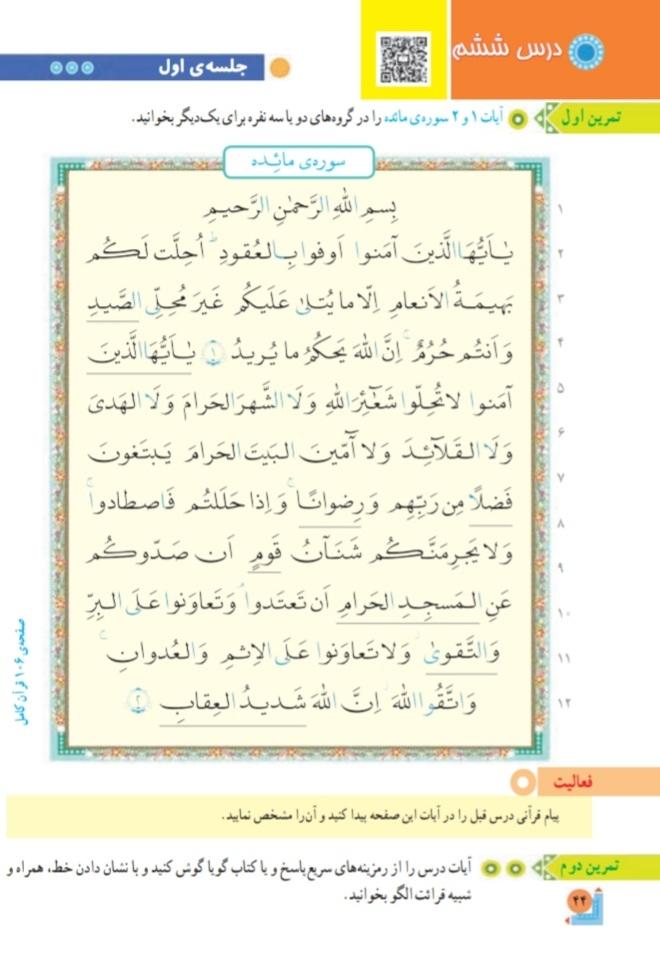 درس ششم
جلسه‌ی اول
تمرین اول
آیات ۱ و ۲ سوره‌ی مائده را در گروه‌های دو یا سه نفره برای یک‌دیگر بخوانید.
سوره‌ی مائِده
۱ بِسمِ اللهِ الرَّحمٰنِ الرَّحیمِ
۲ یٰۤاَیُّهَا الَّذینَ آمَنوا اَوفوا بِالعُقودِ ؕ اُحِلَّت لَکُم
۳ بَهیمَةُ الاَنعامِ اِلّا ما یُتلیٰ عَلَیکُم غَیرَ مُحِلِّی الصَّیدِ
۴ وَ اَنتُم حُرُمٌ ۚ اِنَّ اللهَ یَحکُمُ ما یُریدُ ﴿۱﴾ یٰۤاَیُّهَا الَّذینَ
۵ آمَنوا لا تُحِلّوا شَعٰٓئِرَ اللهِ وَ لَا الشَّهرَ الحَرامَ وَ لَا الهَدیَ
۶ وَ لَا القَلٰٓائِدَ وَ لا آمّینَ البَیتَ الحَرامَ یَبتَغونَ
۷ فَضلًا مِن رَبِّهِم وَ رِضوانًا ۚ وَ اِذا حَلَلتُم فَاصطادوا ۚ
۸ وَ لا یَجرِمَنَّکُم شَنَآنُ قَومٍ اَن صَدّوکُم
۹ عَنِ المَسجِدِ الحَرامِ اَن تَعتَدوا ۘ وَ تَعاوَنوا عَلَی البِرِّ
۱۰ وَ التَّقویٰ ۖ وَ لا تَعاوَنوا عَلَی الاِثمِ وَ العُدوانِ ۚ
۱۱ وَ اتَّقُوا اللهَ ۖ اِنَّ اللهَ شَدیدُ العِقابِ ﴿۲﴾
۱۲
صفحه‌ی ۱۰۶ قرآن کامل
فعالیت
پیام قرآنی درس قبل را در آیات این صفحه پیدا کنید و آن را مشخص نمایید.
تمرین دوم
آیات درس را از رمزینه‌های سریع‌پاسخ و یا کتاب گویا گوش کنید و با نشان دادن خط، همراه و
شبیه قرائت الگو بخوانید.
۴۴